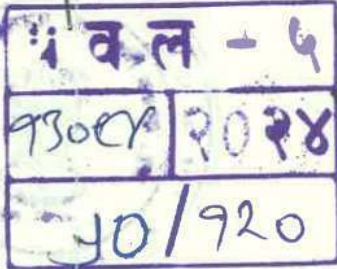 प व ल - ५
१३०८४ २०२४
५०/१२०